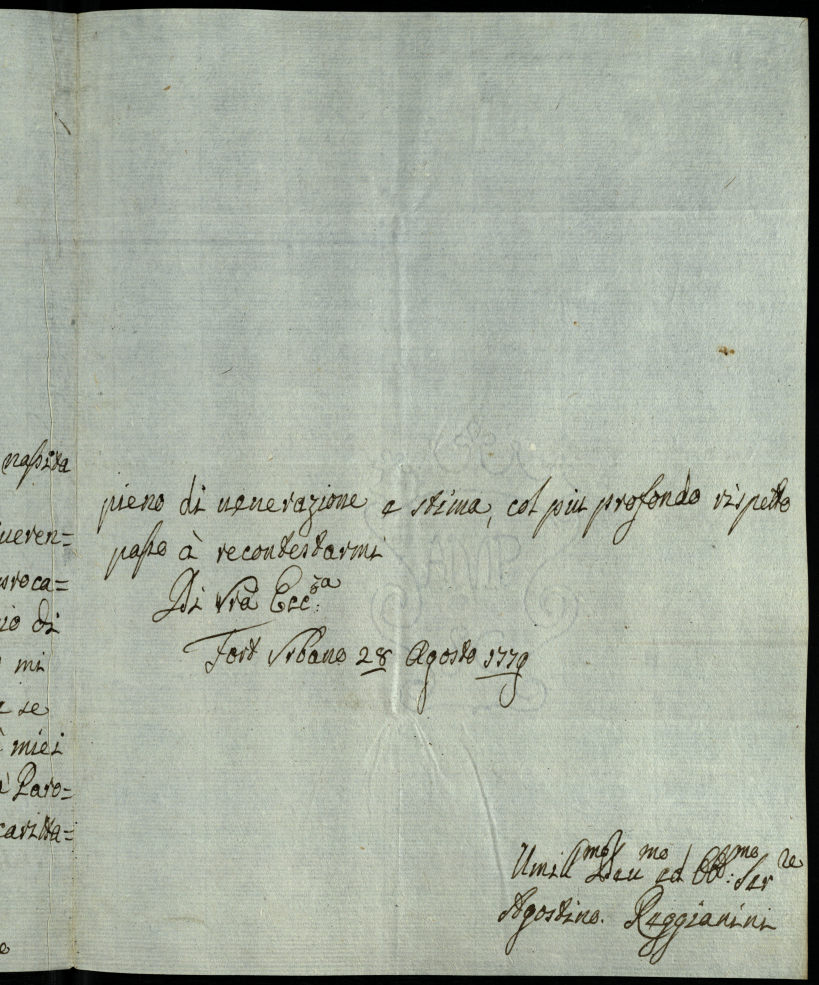 nassita
ueren=
sroca=
io di
mi
se
miei
à Paro=
caritta=
pieno di uenerazione e stima, col piu profondo rispetto
passo à recontestarmi
Di Vrã Ecc:za
Fort Vrbano 28 Agosto 1779
Umill:mo Deu:mo ed Obb:mo Ser:re
Agostino. Reggianini